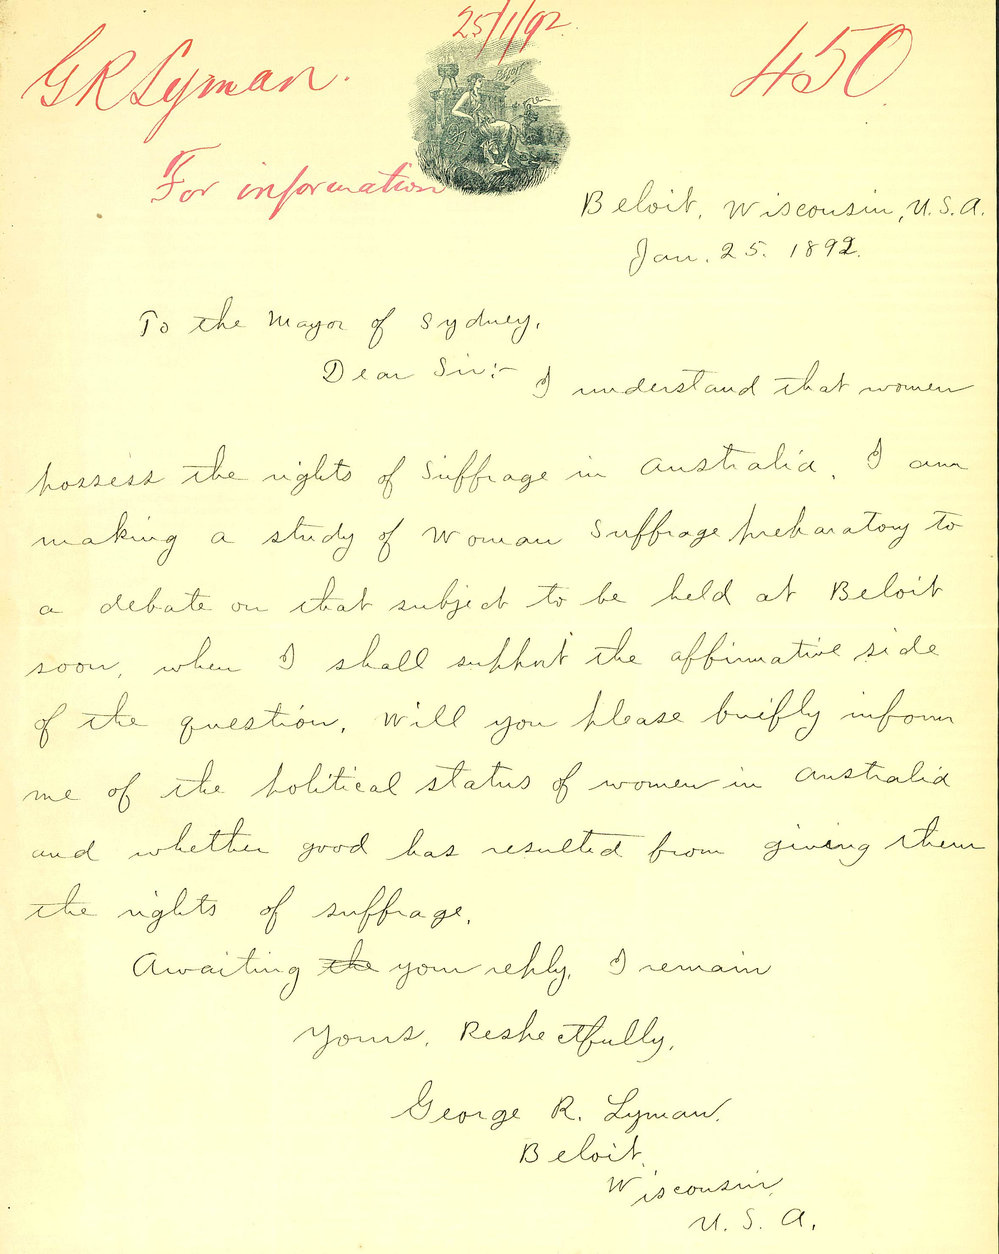 25/1/92.
G R Lyman.
450
For information
Beloit, Wisconsin, U.S.A.
Jan. 25. 1892.
To the Mayor of Sydney,
Dear Sir:- I understand that women
possess the rights of Suffrage in Australia. I am
making a study of Woman Suffrage preparatory to
a debate on that subject to be held at Beloit
soon, when I shall support the affirmative side
of the question. Will you please briefly inform
me of the political status of women in Australia
and whether good has resulted from giving them
the rights of suffrage.
Awaiting the your reply, I remain
Yours, Respectfully,
George R. Lyman.
Beloit,
Wisconsin,
U. S. A.